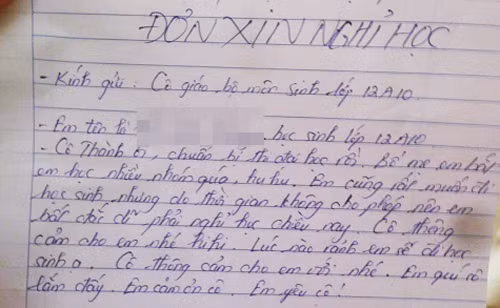 ĐƠN XIN NGHỈ HỌC
- Kính gửi: Cô giáo bộ môn sinh lớp 12A10.
- Em tên là , học sinh lớp 12A10
- Cô Thành ơi, chuẩn bị thi đại học rồi. Bố mẹ em bắt
em học nhiều nhóm quá, hu hu. Em cũng rất muốn đi
học sinh, nhưng do thời gian không cho phép nên em
bất đắc dĩ phải nghỉ học chiều nay. Cô thông
cảm cho em nhé hihi. Lúc nào rảnh em sẽ đi học
sinh ạ. Cô thông cảm cho em với nhé. Em quý cô
lắm đấy. Em cảm ơn cô. Em yêu cô!